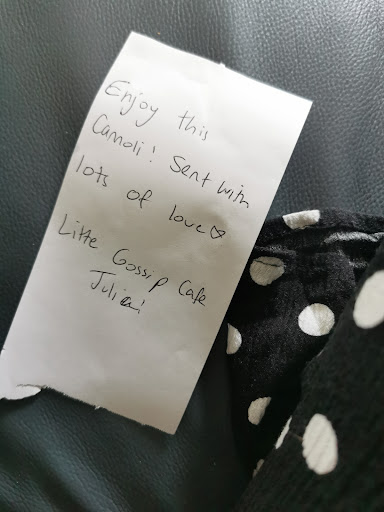 Enjoy this
Cannoli! Sent with
lots of love
Little Gossip Cafe
Julien!